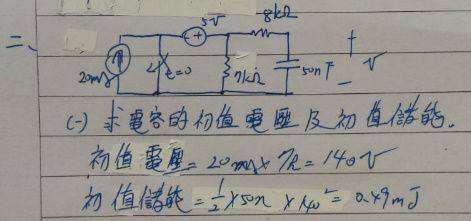 二、
5V
8kΩ
20mA
t=0
7kΩ
50nF
+
V
-
(一) 求電容的初值電壓及初值儲能。
初值電壓 = 20m × 7k = 140V
初值儲能 = 1/2 × 50n × 140² = 0.49mJ